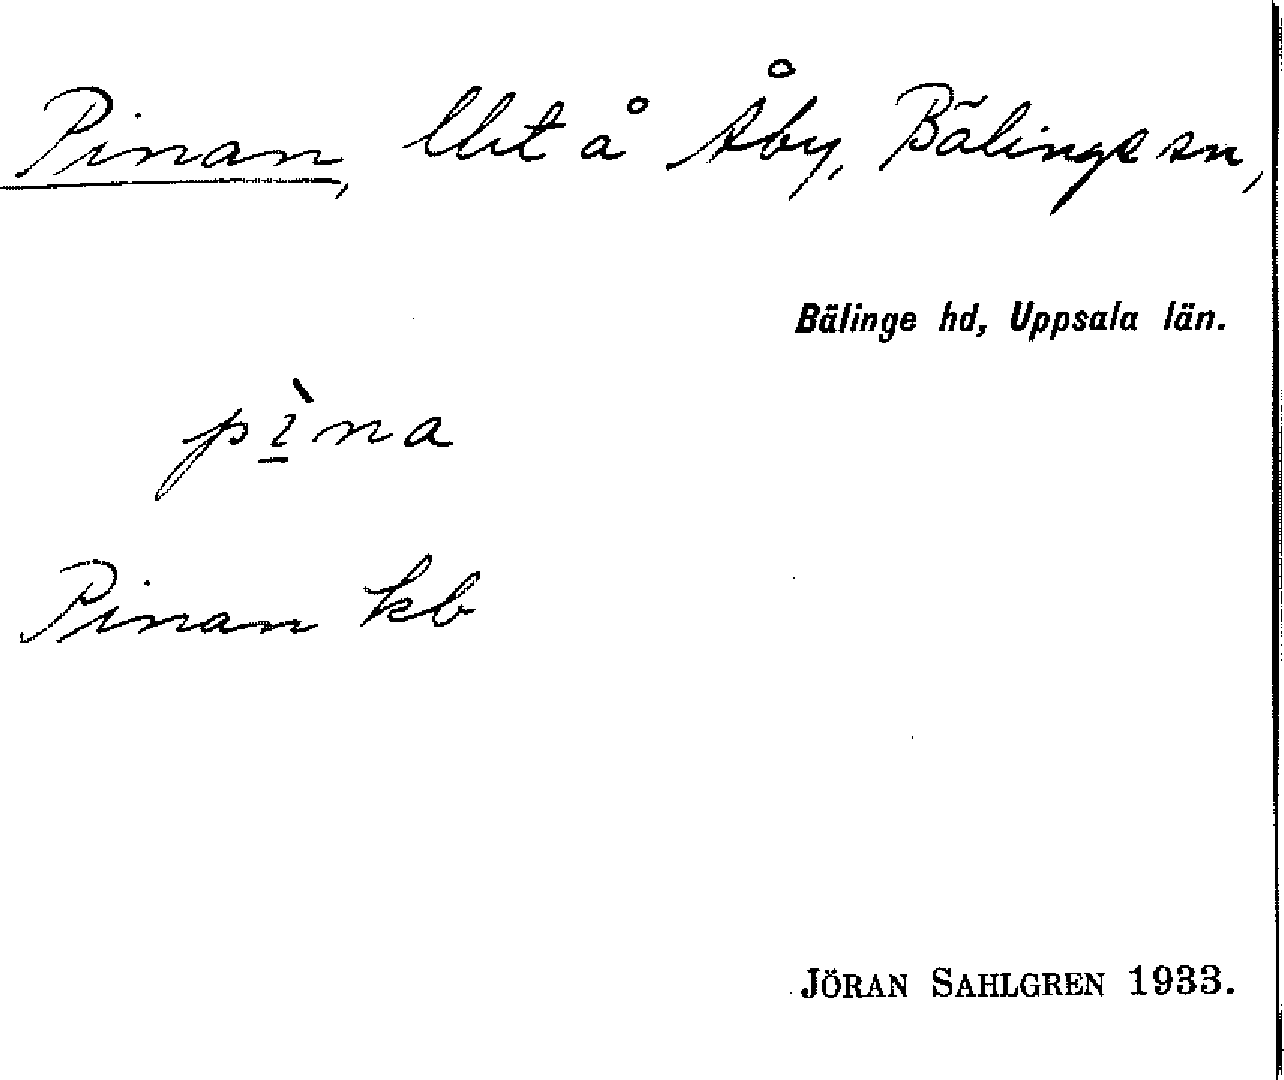 Pinan, llht å Åby, Bälinge sn,
Bälinge hd, Uppsala län.
pìna
Pinan kb
JÖRAN SAHLGREN 1933.